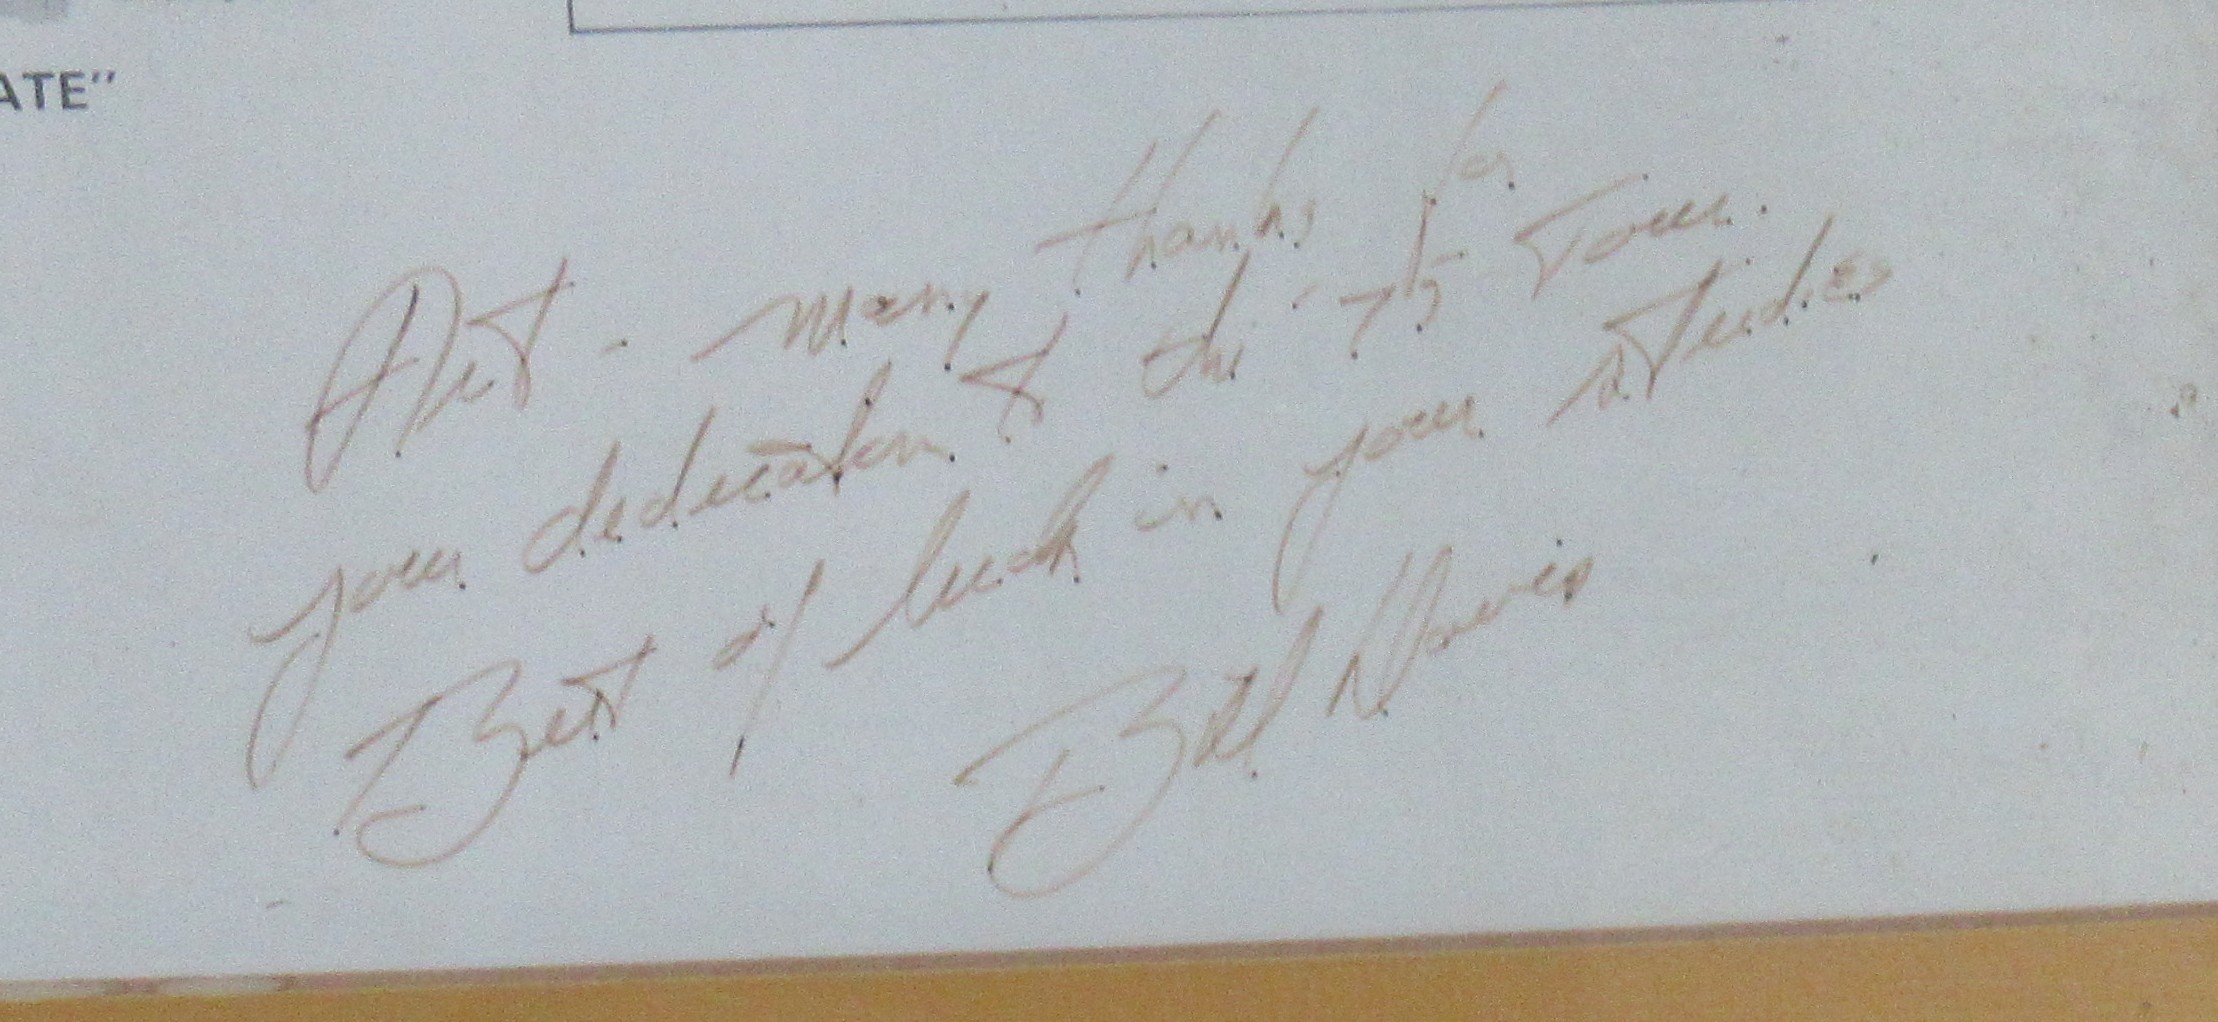 ATE"
Art - Many thanks for
your dedication to the '75 Tour.
Best of luck in your studies
Bill Davis